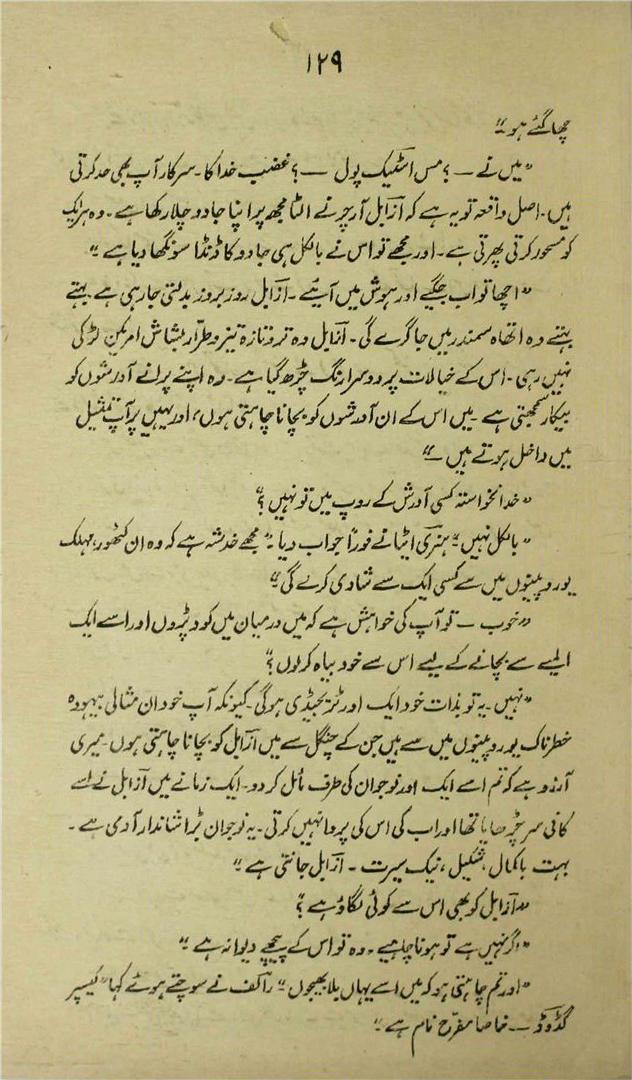 ۱۲۹
چھا گئے ہو۔“
”میں نے — ؟ مس اسٹیک پول — ؟ غضب خدا کا۔ سرکار آپ بھی حد کرتی
ہیں۔ اصل واقعہ تو یہ ہے کہ ازابل آرچر نے الٹا مجھ پر اپنا جادو چلا رکھا ہے۔ وہ ہر ایک
کو مسحور کرتی پھرتی ہے۔ اور مجھے تو اس نے بالکل ہی جادو کا ڈنڈا سونگھا دیا ہے۔“
”اچھا تو اب جگیے اور ہوش میں آیئے۔ ازابل روز بروز بدلتی جا رہی ہے بہتے
بہتے وہ اتھاہ سمندر میں جا گرے گی۔ ازابل وہ تروتازہ تیز و طرّار بشاش امریکن لڑکی
نہیں رہی۔ اس کے خیالات پر دوسرا رنگ چڑھ گیا ہے۔ وہ اپنے پرانے آدرشوں کو
بیکار سمجھتی ہے۔ میں اس کے ان آدرشوں کو بچانا چاہتی ہوں، اور یہیں پر آپ تمثیل
میں داخل ہوتے ہیں۔“
”خدانخواستہ کسی آدرش کے روپ میں تو نہیں؟“
”بالکل نہیں“ ہنری ایٹا نے فوراً جواب دیا۔ ”مجھے خدشہ ہے کہ وہ ان کٹھور، مہلک
یوروپینوں میں سے کسی ایک سے شادی کرلے گی۔“
”خوب — تو آپ کی خواہش ہے کہ میں درمیان میں کود پڑوں اور اسے ایک
ایسے سے بچانے کے لیے اس سے خود بیاہ کرلوں؟“
”نہیں۔ یہ تو بذات خود ایک اور ٹریجیڈی ہوگی۔ کیونکہ آپ خود ان مثالی بیہودہ
خطرناک یوروپینوں میں سے ہیں جن کے چنگل سے میں ازابل کو بچانا چاہتی ہوں۔ میری
آرزو ہے کہ تم اسے ایک اور نوجوان کی طرف مائل کردو۔ ایک زمانے میں ازابل نے اسے
کافی سر چڑھایا تھا اور اب کی اس کی پروا نہیں کرتی۔ یہ نوجوان بڑا شاندار آدمی ہے۔
بہت باکمال، شکیل، نیک سیرت۔ ازابل جانتی ہے۔“
”ازابل کو بھی اس سے کوئی لگاؤ ہے؟“
”اگر نہیں ہے تو ہونا چاہیے۔ وہ تو اس کے پیچھے دیوانہ ہے۔“
”اور تم چاہتی ہو کہ میں اسے یہاں بلا بھیجوں“ رالف نے سوچتے ہوئے کہا ”کیسپر
گڈوڈ — خاصا مفرّح نام ہے۔“